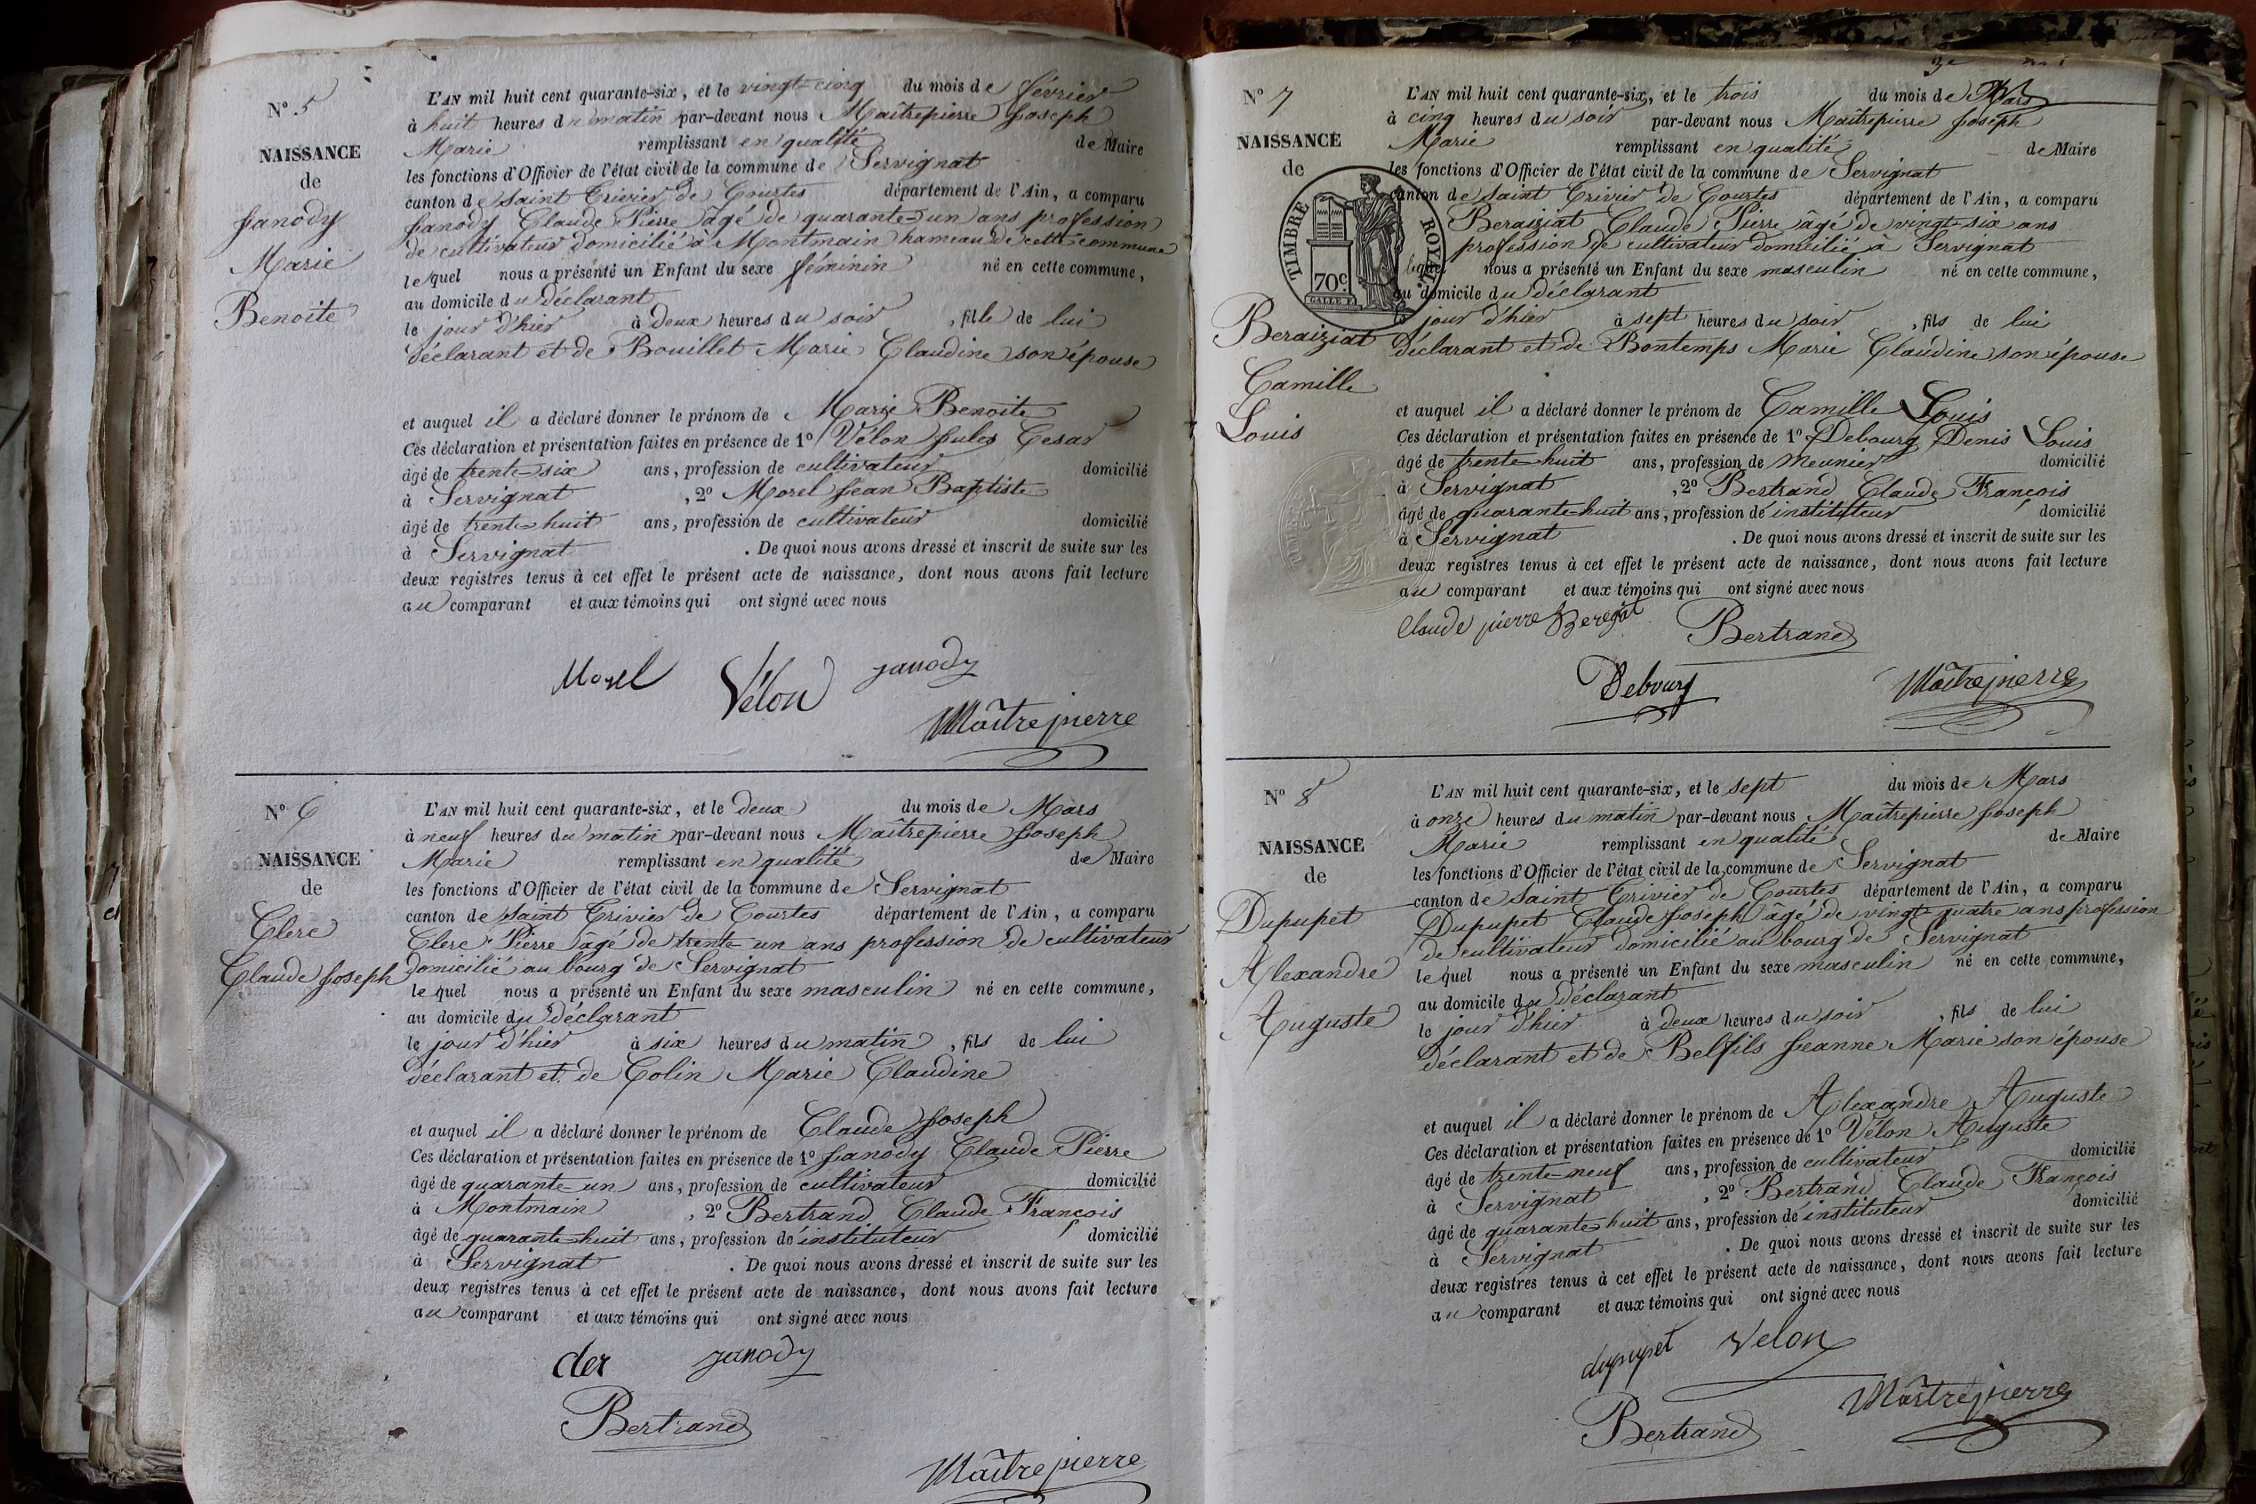 N° 5
NAISSANCE
de
Janody
Marie
Benoite
L'AN mil huit cent quarante-six, et le vingt-cinq du mois de février
à huit heures du matin par-devant nous Maîtrepierre Joseph
Marie remplissant en qualité de Maire
les fonctions d'Officier de l'état civil de la commune de Servignat
canton de Saint Trivier de Courtes département de l'Ain, a comparu
Janody Claude Pierre âgé de quarante-un ans profession
de cultivateur domicilié à Montmain hameau de cette commune
lequel nous a présenté un Enfant du sexe féminin né en cette commune,
au domicile du déclarant
le jour d'hier à deux heures du soir, fille de lui
déclarant et de Bouillet Marie Claudine son épouse
et auquel il a déclaré donner le prénom de Marie Benoite
Ces déclaration et présentation faites en présence de 1° Vélon Jules Cesar
âgé de trente-six ans, profession de cultivateur domicilié
à Servignat, 2° Morel Jean Baptiste
âgé de trente-huit ans, profession de cultivateur domicilié
à Servignat. De quoi nous avons dressé et inscrit de suite sur les
deux registres tenus à cet effet le présent acte de naissance, dont nous avons fait lecture
au comparant et aux témoins qui ont signé avec nous
Morel Vélon janody
Maîtrepierre
N° 6
NAISSANCE
de
Clerc
Claude Joseph
L'AN mil huit cent quarante-six, et le deux du mois de Mars
à neuf heures du matin par-devant nous Maîtrepierre Joseph
Marie remplissant en qualité de Maire
les fonctions d'Officier de l'état civil de la commune de Servignat
canton de Saint Trivier de Courtes département de l'Ain, a comparu
Clerc Pierre âgé de trente-un ans profession de cultivateur
domicilié au bourg de Servignat
lequel nous a présenté un Enfant du sexe masculin né en cette commune,
au domicile du déclarant
le jour d'hier à six heures du matin, fils de lui
déclarant et de Colin Marie Claudine
et auquel il a déclaré donner le prénom de Claude Joseph
Ces déclaration et présentation faites en présence de 1° Janody Claude Pierre
âgé de quarante-un ans, profession de cultivateur domicilié
à Montmain, 2° Bertrand Claude François
âgé de quarante-huit ans, profession de instituteur domicilié
à Servignat. De quoi nous avons dressé et inscrit de suite sur les
deux registres tenus à cet effet le présent acte de naissance, dont nous avons fait lecture
au comparant et aux témoins qui ont signé avec nous
cler janody
Bertrand
Maîtrepierre
N° 7
NAISSANCE
de
TIMBRE ROYAL
70c.
Beraiziat
Camille
Louis
L'AN mil huit cent quarante-six, et le trois du mois de Mars
à cinq heures du soir par-devant nous Maîtrepierre Joseph
Marie remplissant en qualité de Maire
les fonctions d'Officier de l'état civil de la commune de Servignat
canton de Saint Trivier de Courtes département de l'Ain, a comparu
Beraiziat Claude Pierre âgé de vingt-six ans
profession de cultivateur domicilié à Servignat
lequel nous a présenté un Enfant du sexe masculin né en cette commune,
au domicile du déclarant
le jour d'hier à sept heures du soir, fils de lui
déclarant et de Bontemps Marie Claudine son épouse
et auquel il a déclaré donner le prénom de Camille Louis
Ces déclaration et présentation faites en présence de 1° Debourg Denis Louis
âgé de trente-huit ans, profession de meunier domicilié
à Servignat, 2° Bertrand Claude François
âgé de quarante-huit ans, profession de instituteur domicilié
à Servignat. De quoi nous avons dressé et inscrit de suite sur les
deux registres tenus à cet effet le présent acte de naissance, dont nous avons fait lecture
au comparant et aux témoins qui ont signé avec nous
Claude pierre Bertrand
Debourg Maîtrepierre
N° 8
NAISSANCE
de
Dupupet
Alexandre
Auguste
L'AN mil huit cent quarante-six, et le sept du mois de Mars
à onze heures du matin par-devant nous Maîtrepierre Joseph
Marie remplissant en qualité de Maire
les fonctions d'Officier de l'état civil de la commune de Servignat
canton de Saint Trivier de Courtes département de l'Ain, a comparu
Dupupet Claude Joseph âgé de vingt-quatre ans profession
de cultivateur domicilié au bourg de Servignat
lequel nous a présenté un Enfant du sexe masculin né en cette commune,
au domicile du déclarant
le jour d'hier à deux heures du soir, fils de lui
déclarant et de Belfils Jeanne Marie son épouse
et auquel il a déclaré donner le prénom de Alexandre Auguste
Ces déclaration et présentation faites en présence de 1° Vélon Auguste
âgé de trente-neuf ans, profession de cultivateur domicilié
à Servignat, 2° Bertrand Claude François
âgé de quarante-huit ans, profession de instituteur domicilié
à Servignat. De quoi nous avons dressé et inscrit de suite sur les
deux registres tenus à cet effet le présent acte de naissance, dont nous avons fait lecture
au comparant et aux témoins qui ont signé avec nous
dupupet Velon
Bertrand Maîtrepierre